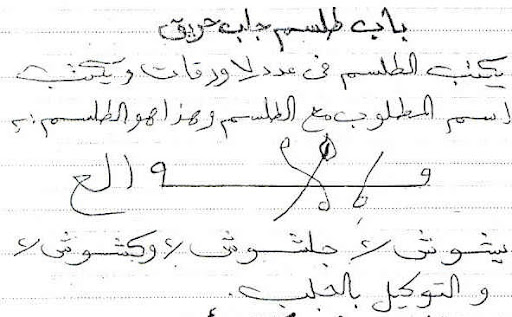 باب طلسم جلب حريق
يكتب الطلسم فى عدد ٧ ورقات ويكتب
اسم المطلوب مع الطلسم وهذا هو الطلسم :
بيشوش ٢/ جلشوش ٢/ وكشوش ٢/
والتوكيل بالجلب .